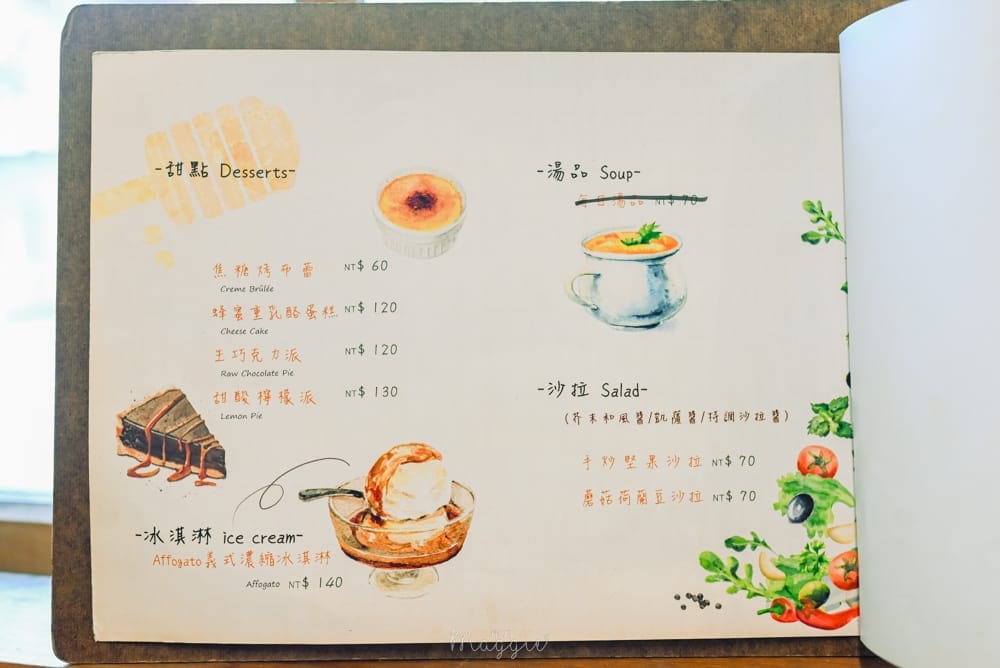 -甜點 Desserts-
焦糖烤布蕾 NT$ 60
Creme Brûlée
蜂蜜重乳酪蛋糕 NT$ 120
Cheese Cake
生巧克力派 NT$ 120
Raw Chocolate Pie
甜酸檸檬派 NT$ 130
Lemon Pie
-冰淇淋 ice cream-
Affogato義式濃縮冰淇淋
Affogato NT$ 140
-湯品 Soup-
每日湯品 NT$ 70
-沙拉 Salad-
(芥末和風醬/凱薩醬/特調沙拉醬)
手炒堅果沙拉 NT$ 70
蘑菇荷蘭豆沙拉 NT$ 70
Maggie